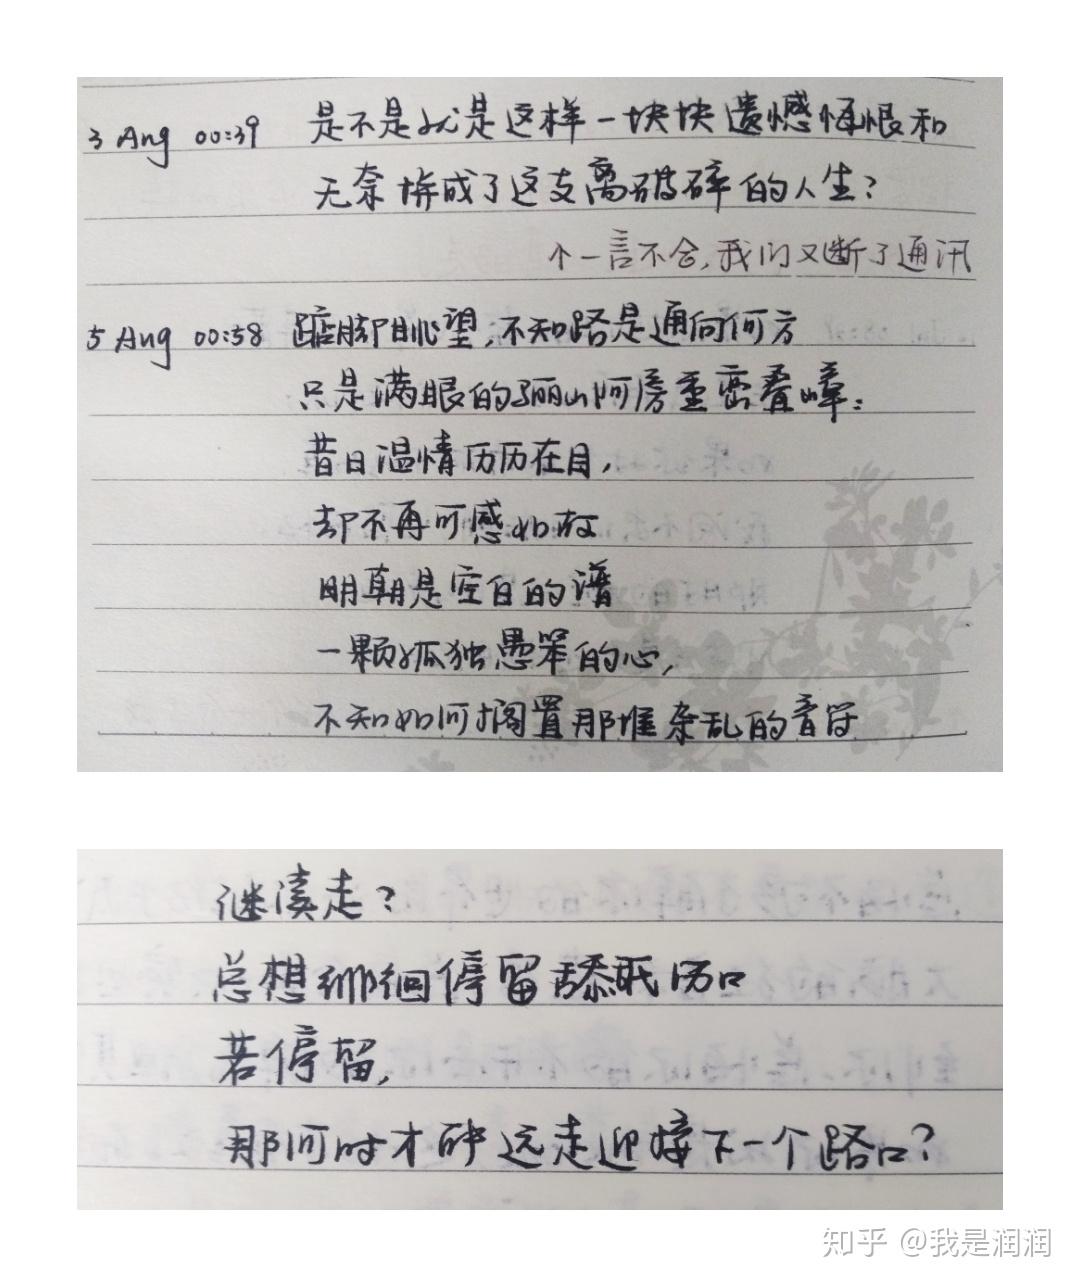 3 Aug 00:39 是不是就是这样一块块遗憾悔恨和
无奈拼成了这支离破碎的人生？
个一言不合，我们又断了通讯
5 Aug 00:58 踮脚眺望，不知路是通向何方
只是满眼的骊山阿房重峦叠嶂：
昔日温情历历在目，
却不再可感如故
明朝是空白的谱
一颗孤独愚笨的心，
不知如何搁置那堆杂乱的音符
继续走？
总想徘徊停留舔舐伤口
若停留，
那何时才能远走迎接下一个路口？
知乎 @我是润润